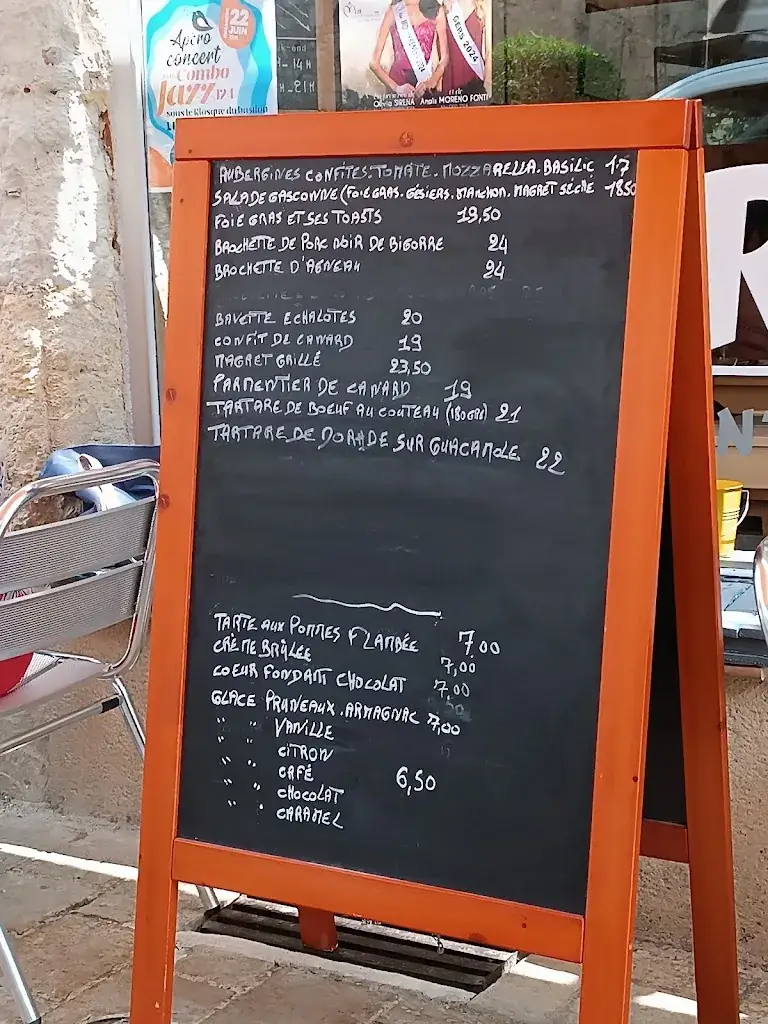 Apéro
22
JUIN
concert
Combo
Jazz 124
sous le Kiosque du bastion
GERS 2024
Olivia SIRENA Anaïs MORENO FONT
AUBERGINES CONFITES.TOMATE.MOZZARELLA.BASILIC 17
SALADE GASCONNE (FOIE GRAS.GÉSIERS.MANCHON.MAGRET SÉCHÉ 18,50
FOIE GRAS ET SES TOASTS 19,50
BROCHETTE DE PORC NOIR DE BIGORRE 24
BROCHETTE D'AGNEAU 24
BAVETTE ECHALOTES 20
CONFIT DE CANARD 19
MAGRET GRILLÉ 23,50
PARMENTIER DE CANARD 19
TARTARE DE BOEUF AU COUTEAU (180GR) 21
TARTARE DE DORADE SUR GUACAMOLE 22
TARTE AUX POMMES FLAMBÉE 7,00
CRÈME BRÛLÉE 7,00
COEUR FONDANT CHOCOLAT 7,00
GLACE PRUNEAUX.ARMAGNAC 7,00
" " VANILLE
" " CITRON
" " CAFÉ 6,50
" " CHOCOLAT
" " CARAMEL
R
N